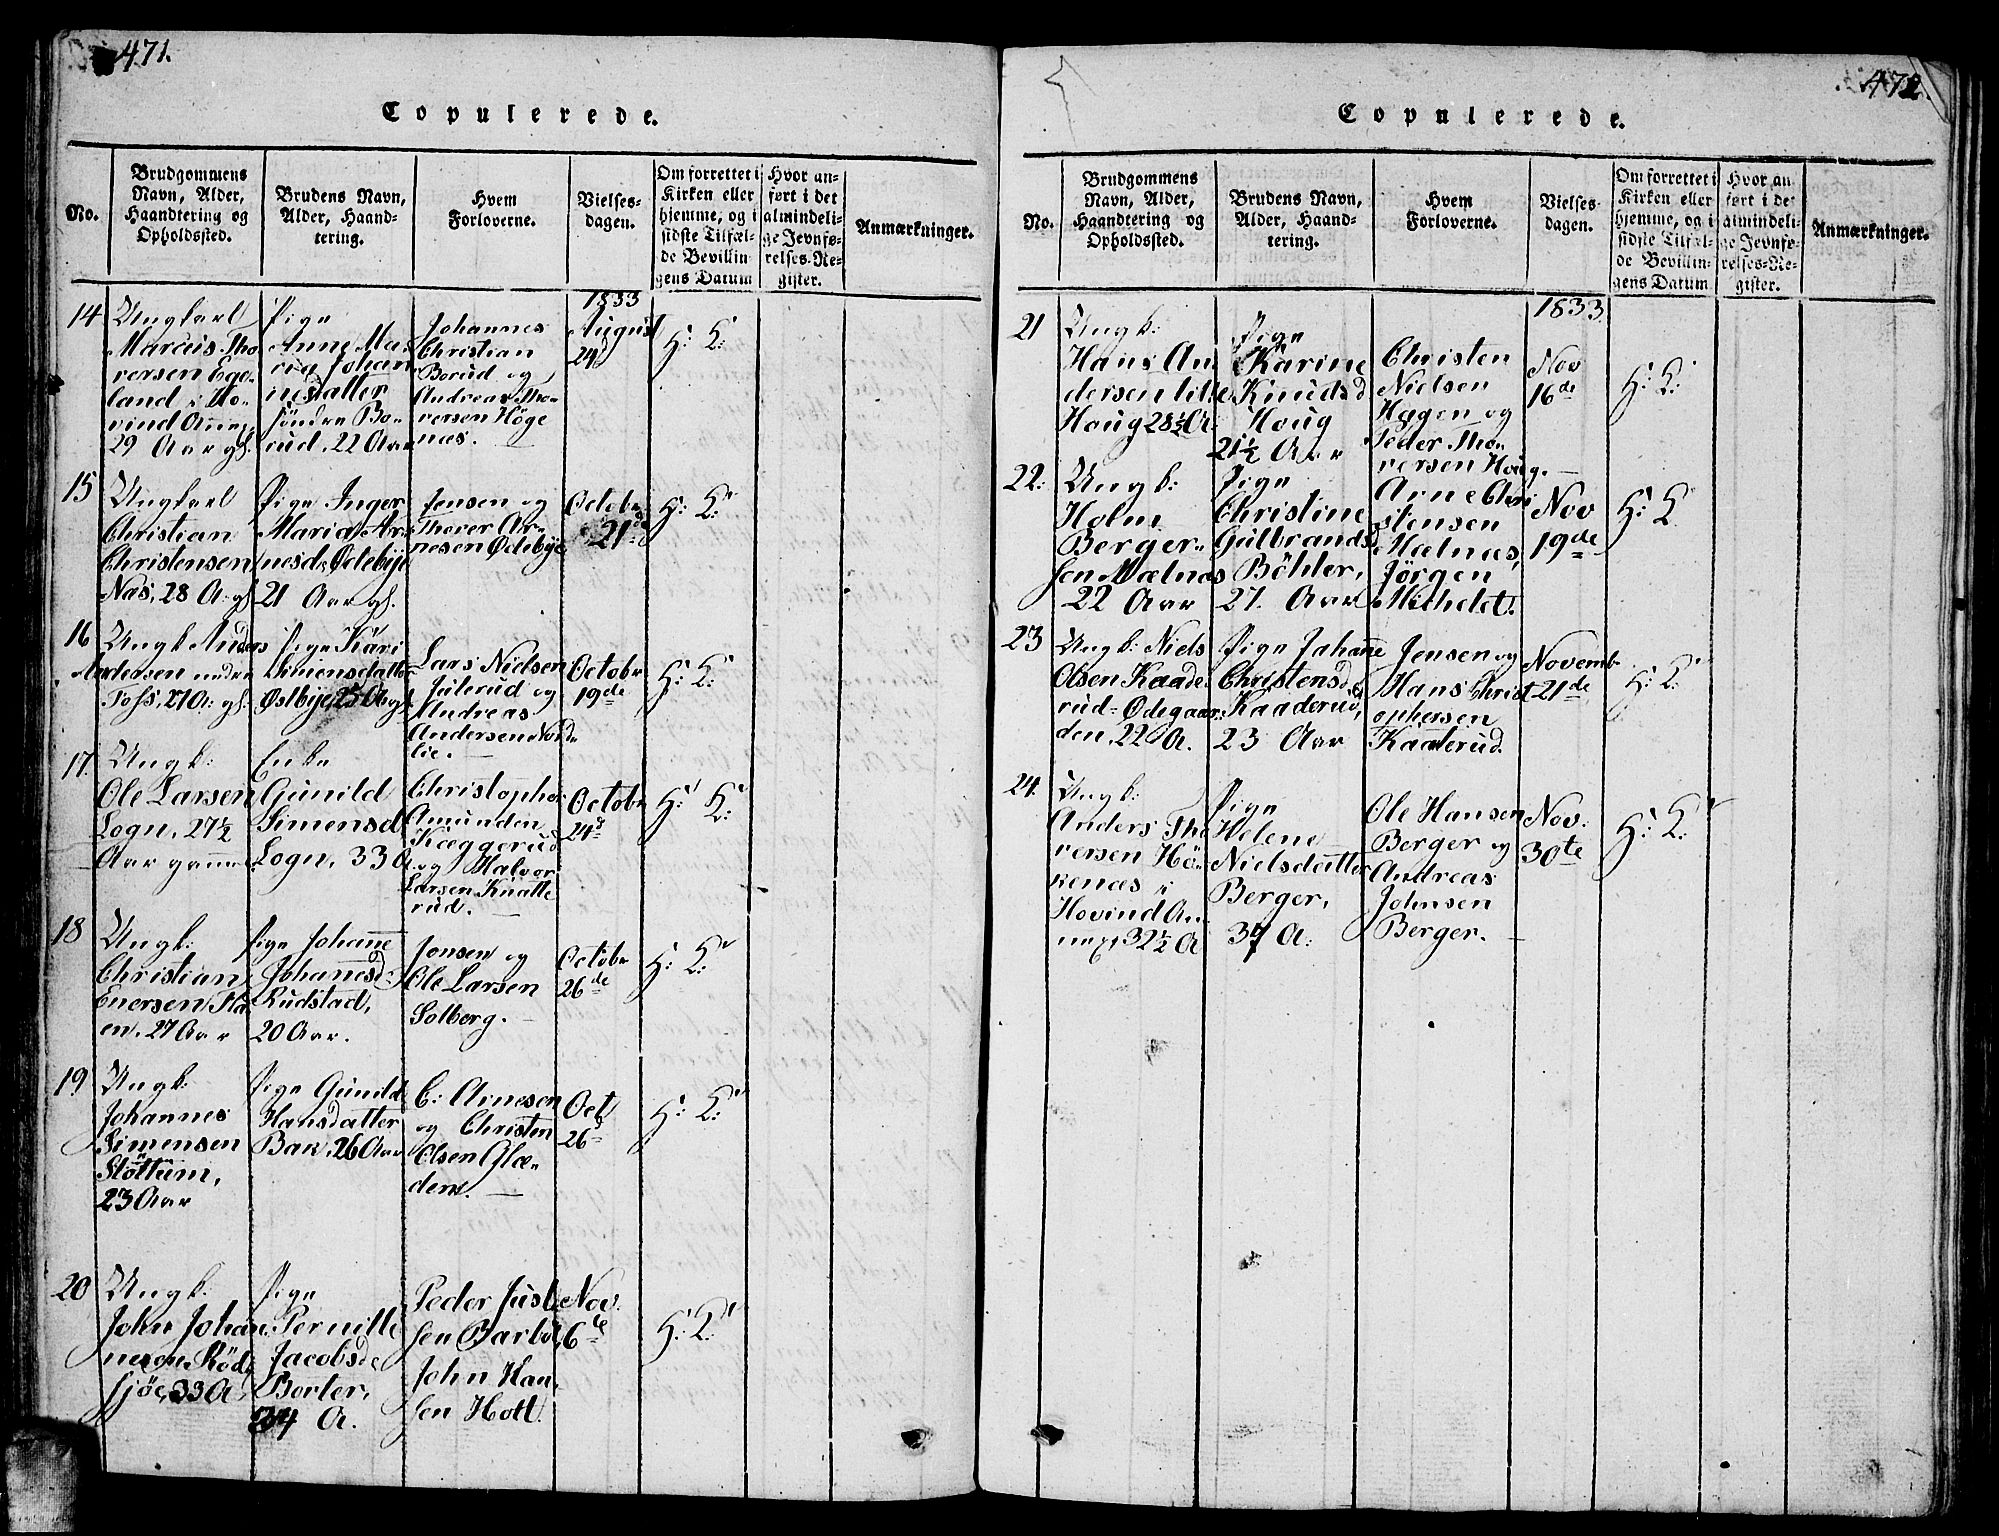 471.
Copulerede.
No.
Brudgommens
Navn, Alder,
Haandtering og
Opholdssted.
Brudens Navn,
Alder, Haand-
tering.
Hvem
Forloverne.
Vielses-
dagen.
Om forrettet i
Kirken eller
hjemme, og i
sidste Tilfæl-
de Bevillin-
gens Datum
Hvor an-
ført i det
almindeli-
ge Jevnfø-
relses-Re-
gister.
Anmærkninger.
14
Ungkarl
Marcus Tho
rersen Ege-
land i Ho-
vind Annex
29 Aar gl.
Pige
Anne Ma-
ria Johan
nesdatter
söndre Bo-
rud, 22 Aar
Johannes
Christian
Borud og
Andreas Tho-
rersen Höge
næs.
1833
August
24
H: K:
15
Ungkarl
Christian
Christensen
Næs, 28 A. gl.
Pige Inger
Maria Ar-
nesd. Ødebye
21 Aar gl.
Jensen og
Therer Ar-
nesen Ødebye
Octobr
21d
H: K:
16
Ungk. Anders
Andersen nedre
Foss, 27 A: gl.
Pige Kari
Simensdatter
Østbye 25 A gl.
Lars Nielsen
Julerud og
Andreas
Andersen Nord-
lie.
Octobr
19de
H: K:
17.
Ungk:
Ole Larsen
Logn, 27½
Aar gammel
Enke
Gunild
Simensd
Logn, 33 A
Christopher
Amunden
Kæggerud
og Halvor
Larsen Knatte
rud.
Octobr
24d
H: K:
18
Ungk:
Christian
Enersen Ha
en, 27 Aar
Pige Johanne
Johanesd
Rudstad,
20 Aar.
Jonsen og
Ole Larsen
Solberg.
Octobr
26de
H: K:
19
Ungk:
Johannes
Simensen
Stöttum,
23 Aar
Pige Gunild
Hansdatter
Bak, 26 Aar
C: Arnesen
og Christen
Olsen Glæ-
den.
Oct
26d
H: K:
20
Ungk:
John Johan
nesen Röd
sjöe, 33 A
Pige
Pernille
Jacobsd
Borter,
34 A.
Peder Just
sen Barböl,
John Han
sen Holt.
Nov.
6de
H: K:
472.
Copulerede.
No.
Brudgommens
Navn, Alder,
Haandtering og
Opholdssted.
Brudens Navn,
Alder, Haand-
tering.
Hvem
Forloverne.
Vielses-
dagen.
Om forrettet i
Kirken eller
hjemme, og i
sidste Tilfæl-
de Bevillin-
gens Datum
Hvor an-
ført i det
almindeli-
ge Jevnfø-
relses-Re-
gister.
Anmærkninger.
21
Ungk:
Hans An
dersen lille
Houg 28½ A.
Pige
Karine
Knudsd
Houg
21½ Aar
Christen
Nielsen
Hagen og
Peder Tho-
rersen Houg.
1833
Nov
16de
H: K:
22:
Ungk:
Holm
Berger-
sen Mælnæs
22 Aar
Pige
Christine
Gulbrandsd
Böhler,
27. Aar
Arne Chri
stensen
Mælnæs,
Jörgen
Michelet.
Nov
19de
H: K
23
Ungk: Niels
Olsen Kaade-
rud- Ødegaar-
den, 22 A.
Pige Johanne
Christensd
Kaaderud,
23 Aar
Jensen og
Hans Christ
ophersen
Kaaderud.
Novemb
21de
H: K:
24.
Ungk:
Anders Tho
rersen Hö-
kenæs i
Hovind An-
nex, 32½ A
Pige
Helene
Nielsdatter
Berger,
37 A:
Ole Hansen
Berger og
Andreas
Johnsen
Berger.
Nov:
30te
H: K: